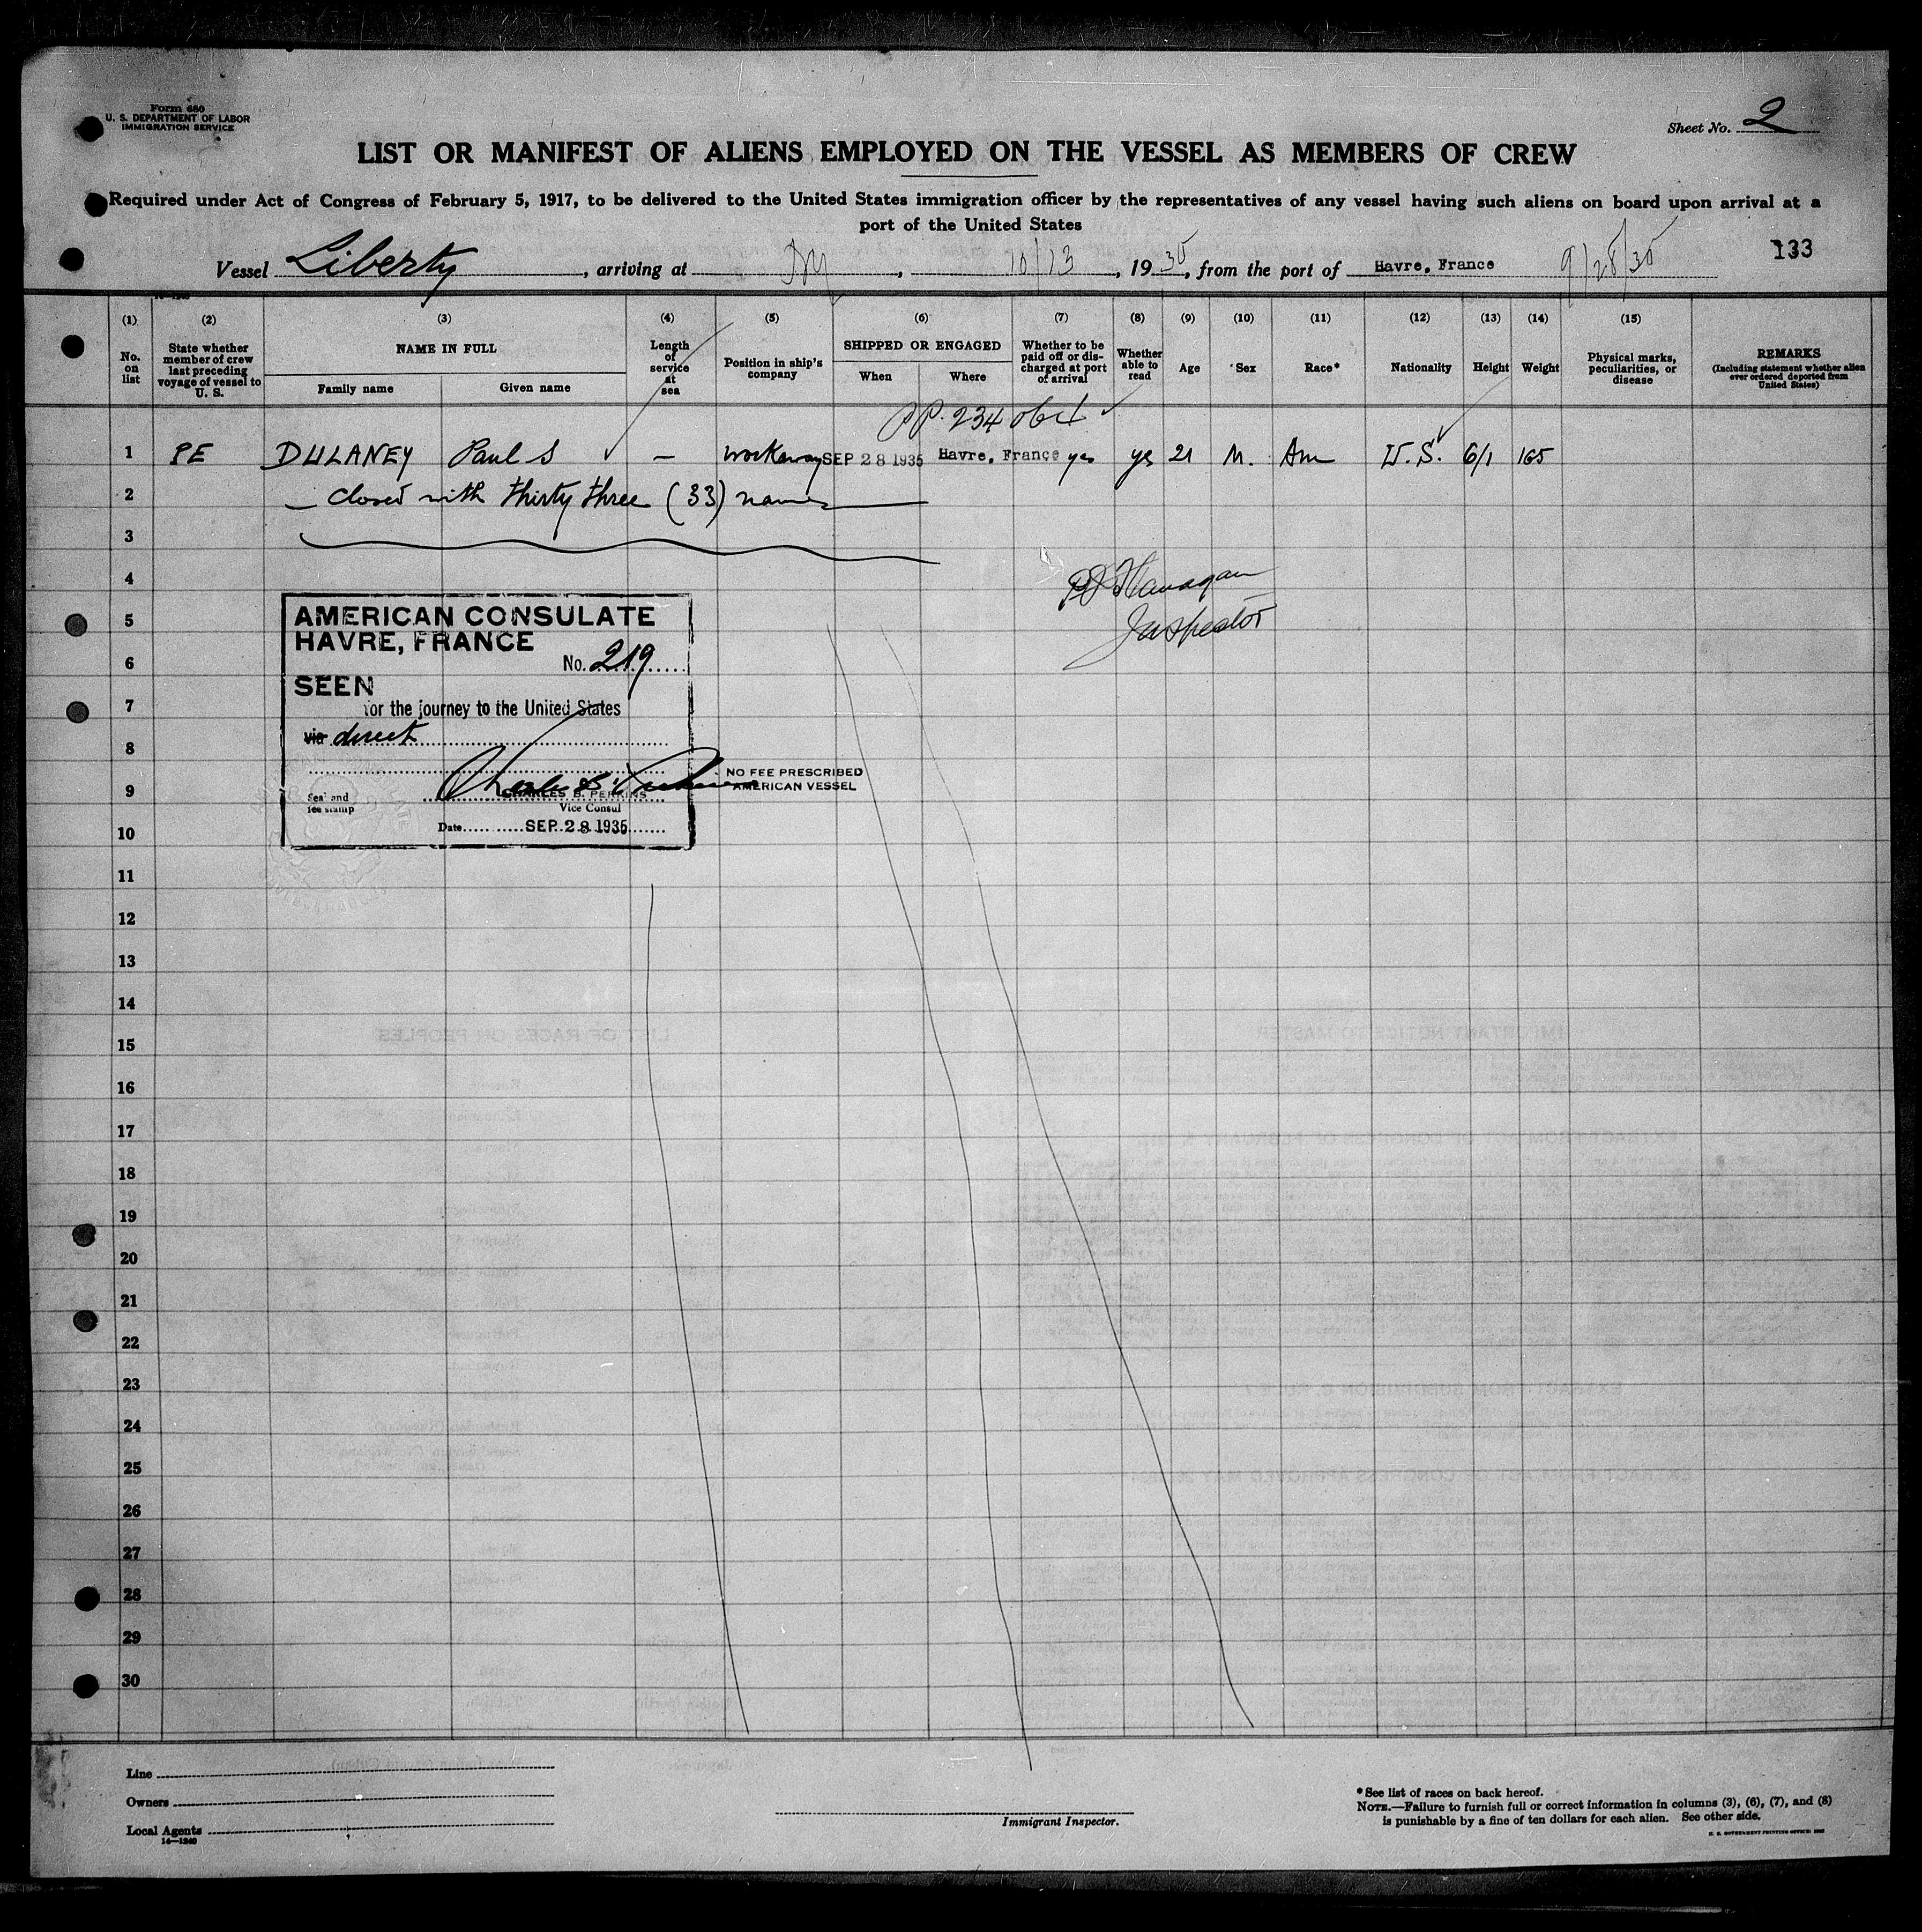 Form 680
U. S. DEPARTMENT OF LABOR
IMMIGRATION SERVICE
Sheet No. 2
LIST OR MANIFEST OF ALIENS EMPLOYED ON THE VESSEL AS MEMBERS OF CREW
Required under Act of Congress of February 5, 1917, to be delivered to the United States immigration officer by the representatives of any vessel having such aliens on board upon arrival at a
port of the United States
133
Vessel Liberty, arriving at NY, 10/13, 1935, from the port of Havre, France 9/28/35
(1) (2) (3) (4) (5) (6) (7) (8) (9) (10) (11) (12) (13) (14) (15)
No. on list
State whether member of crew last preceding voyage of vessel to U. S.
NAME IN FULL
Family name Given name
Length of service at sea
Position in ship's company
SHIPPED OR ENGAGED
When Where
Whether to be paid off or discharged at port of arrival
Whether able to read
Age
Sex
Race*
Nationality
Height
Weight
Physical marks, peculiarities, or disease
REMARKS
(Including statement whether alien ever ordered deported from United States)
PP. 234
1 PE DULANEY Paul S — workaway SEP 28 1935 Havre, France yes yes 21 M. Am U.S. 6/1 165
2 — closed with thirty three (33) names
3
4
5
6
7
8
9
10
11
12
13
14
15
16
17
18
19
20
21
22
23
24
25
26
27
28
29
30
Flanagan
Inspector
AMERICAN CONSULATE
HAVRE, FRANCE
No. 219
SEEN
for the journey to the United States
via direct
Charles B. Perkins
CHARLES B. PERKINS
Vice Consul
Seal and
fee stamp
Date SEP 28 1935
NO FEE PRESCRIBED
AMERICAN VESSEL
Line
Owners
Local Agents
14—1240
Immigrant Inspector.
* See list of races on back hereof.
NOTE.—Failure to furnish full or correct information in columns (3), (6), (7), and (8)
is punishable by a fine of ten dollars for each alien. See other side.